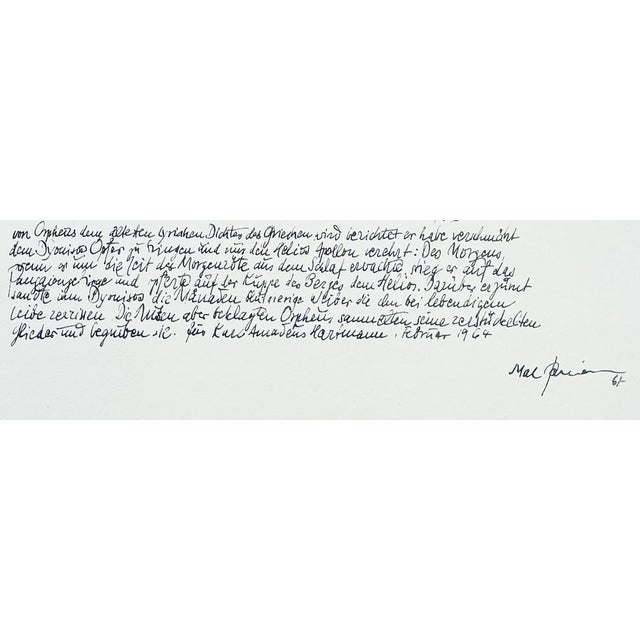 von Orpheus dem ältesten lyrischen Dichter der Griechen wird berichtet er habe verschmäht
dem Dyonisos Opfer zu bringen und nur den Helios Apollon verehrt: Des Morgens,
wenn er um die Zeit der Morgenröte aus dem Schlaf erwachte, stieg er auf das
und opferte auf der Kuppe des Berges dem Helios. Darüber erzürnt
sandte ihm Dyonisos die Mänaden blutgierige Weiber die den bei lebendigem
Leibe zerrissen. Die Musen aber beklagten Orpheus sammelten seine zerstückelten
Glieder und begruben sie. für Karl Amadeus Hartmann, Februar 1964
Mac
64